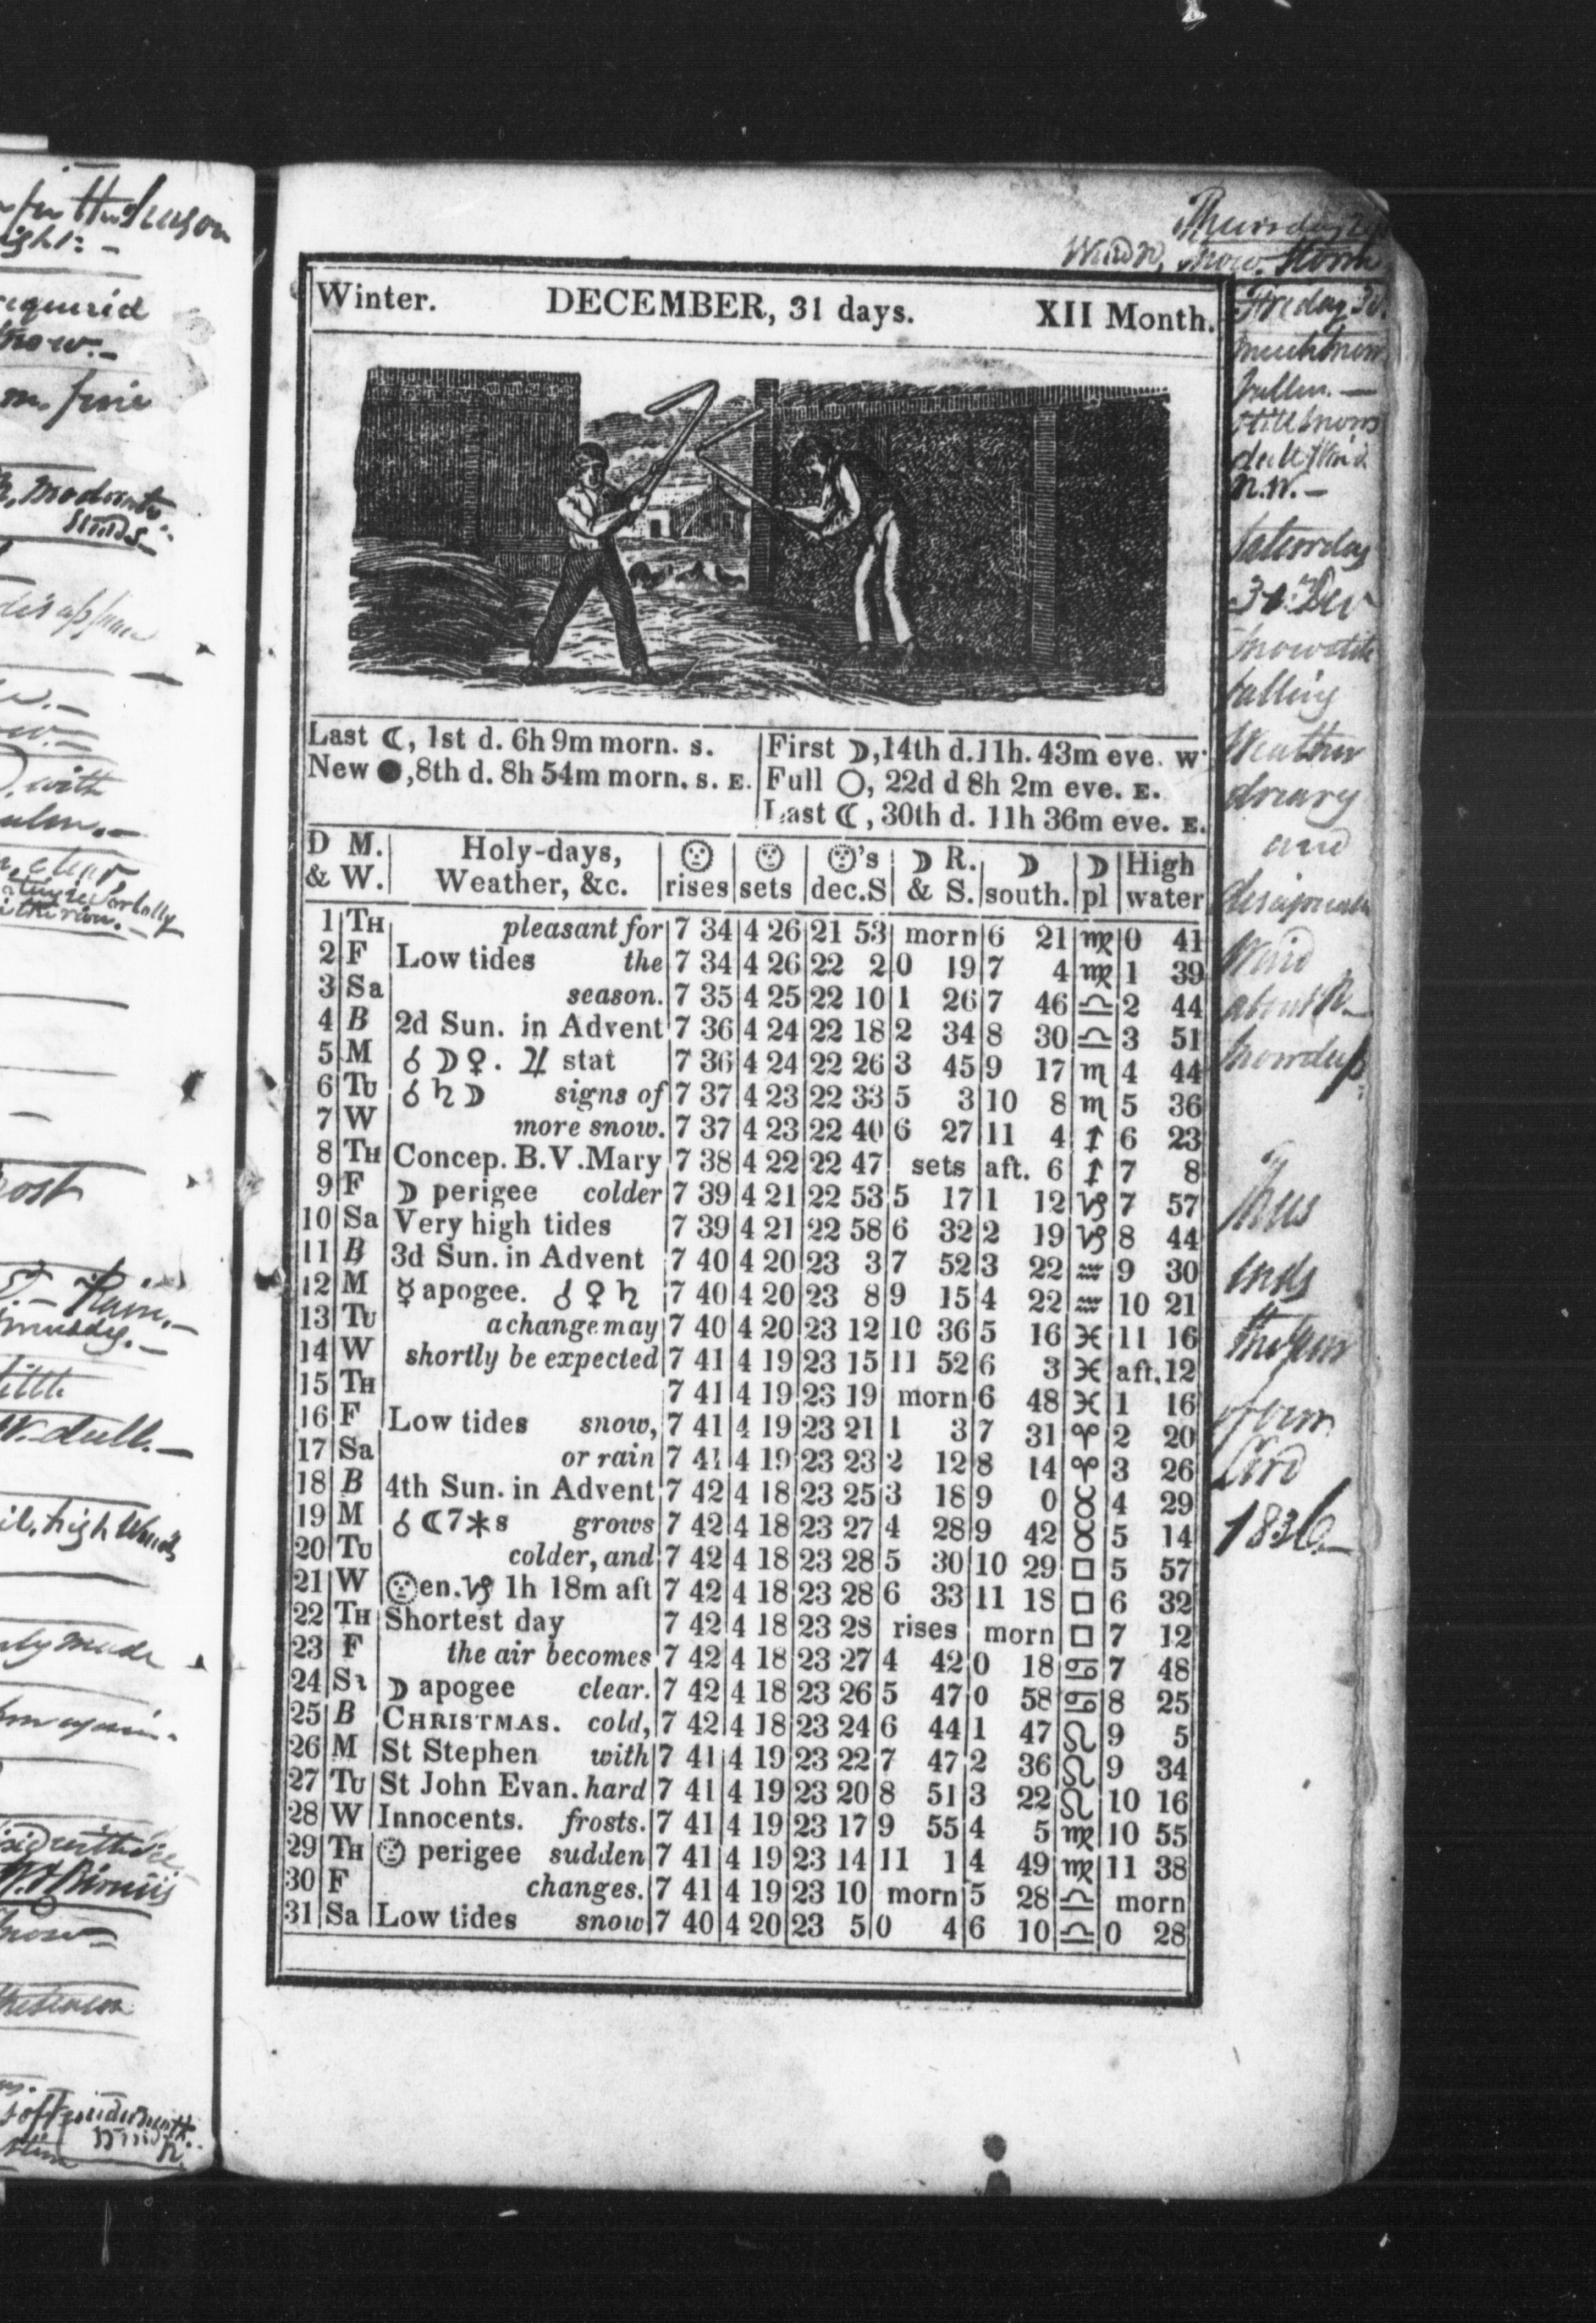 for the Season
ight: –
requird
now. –
m. fine
moderate
winds
disappear
with
calm. –
clear
partially
in the river. –
ost
Rain. –
muddy. –
little
W. dull. –
high Winds
made
again.
Thursday 29
Wind N, Snow Storm
Winter. DECEMBER, 31 days. XII Month.
Last ☾, 1st d. 6h 9m morn. s.
New ●, 8th d. 8h 54m morn. s. E.
First ☽, 14th d. 11h. 43m eve. w
Full ○, 22d d 8h 2m eve. E.
Last ☾, 30th d. 11h 36m eve. E.
D M. & W. | Holy-days, Weather, &c. | ☉ rises | ☉ sets | ☉'s dec.S | ☽ R. & S. | ☽ south. | ☽ pl | High water
1 TH pleasant for 7 34 4 26 21 53 morn 6 21 ♍ 0 41
2 F Low tides the 7 34 4 26 22 2 0 19 7 4 ♍ 1 39
3 Sa season. 7 35 4 25 22 10 1 26 7 46 ♎ 2 44
4 B 2d Sun. in Advent 7 36 4 24 22 18 2 34 8 30 ♎ 3 51
5 M ☌ ☽ ♀. ♃ stat 7 36 4 24 22 26 3 45 9 17 ♏ 4 44
6 TU ☌ ♄ ☽ signs of 7 37 4 23 22 33 5 3 10 8 ♏ 5 36
7 W more snow. 7 37 4 23 22 40 6 27 11 4 ♐ 6 23
8 TH Concep. B.V. Mary 7 38 4 22 22 47 sets aft. 6 ♐ 7 8
9 F ☽ perigee colder 7 39 4 21 22 53 5 17 1 12 ♑ 7 57
10 Sa Very high tides 7 39 4 21 22 58 6 32 2 19 ♑ 8 44
11 B 3d Sun. in Advent 7 40 4 20 23 3 7 52 3 22 ♒ 9 30
12 M ☿ apogee. ☌ ♀ ♄ 7 40 4 20 23 8 9 15 4 22 ♒ 10 21
13 TU a change may 7 40 4 20 23 12 10 36 5 16 ♓ 11 16
14 W shortly be expected 7 41 4 19 23 15 11 52 6 3 ♓ aft. 12
15 TH 7 41 4 19 23 19 morn 6 48 ♓ 1 16
16 F Low tides snow, 7 41 4 19 23 21 1 3 7 31 ♈ 2 20
17 Sa or rain 7 41 4 19 23 23 2 12 8 14 ♈ 3 26
18 B 4th Sun. in Advent 7 42 4 18 23 25 3 18 9 0 ♉ 4 29
19 M ☌ ☾ 7*s grows 7 42 4 18 23 27 4 28 9 42 ♉ 5 14
20 TU colder, and 7 42 4 18 23 28 5 30 10 29 □ 5 57
21 W ☉ en. ♑ 1h 18m aft 7 42 4 18 23 28 6 33 11 18 □ 6 32
22 TH Shortest day 7 42 4 18 23 28 rises morn □ 7 12
23 F the air becomes 7 42 4 18 23 27 4 42 0 18 ♋ 7 48
24 Sa ☽ apogee clear. 7 42 4 18 23 26 5 47 0 58 ♋ 8 25
25 B CHRISTMAS. cold, 7 42 4 18 23 24 6 44 1 47 ♌ 9 5
26 M St Stephen with 7 41 4 19 23 22 7 47 2 36 ♌ 9 34
27 TU St John Evan. hard 7 41 4 19 23 20 8 51 3 22 ♌ 10 16
28 W Innocents. frosts. 7 41 4 19 23 17 9 55 4 5 ♍ 10 55
29 TH ☉ perigee sudden 7 41 4 19 23 14 11 1 4 49 ♍ 11 38
30 F changes. 7 41 4 19 23 10 morn 5 28 ♎ morn
31 Sa Low tides snow 7 40 4 20 23 5 0 4 6 10 ♎ 0 28
Friday 30
much snow
fallen. –
still snows
dull Wind
N.W. –
Saturday
31 Dec
snow still
falling
Weather
dreary
and
disagreeable
Wind
about N. –
snow deep
Thus
ends
the Year
of our
Lord
1836. –